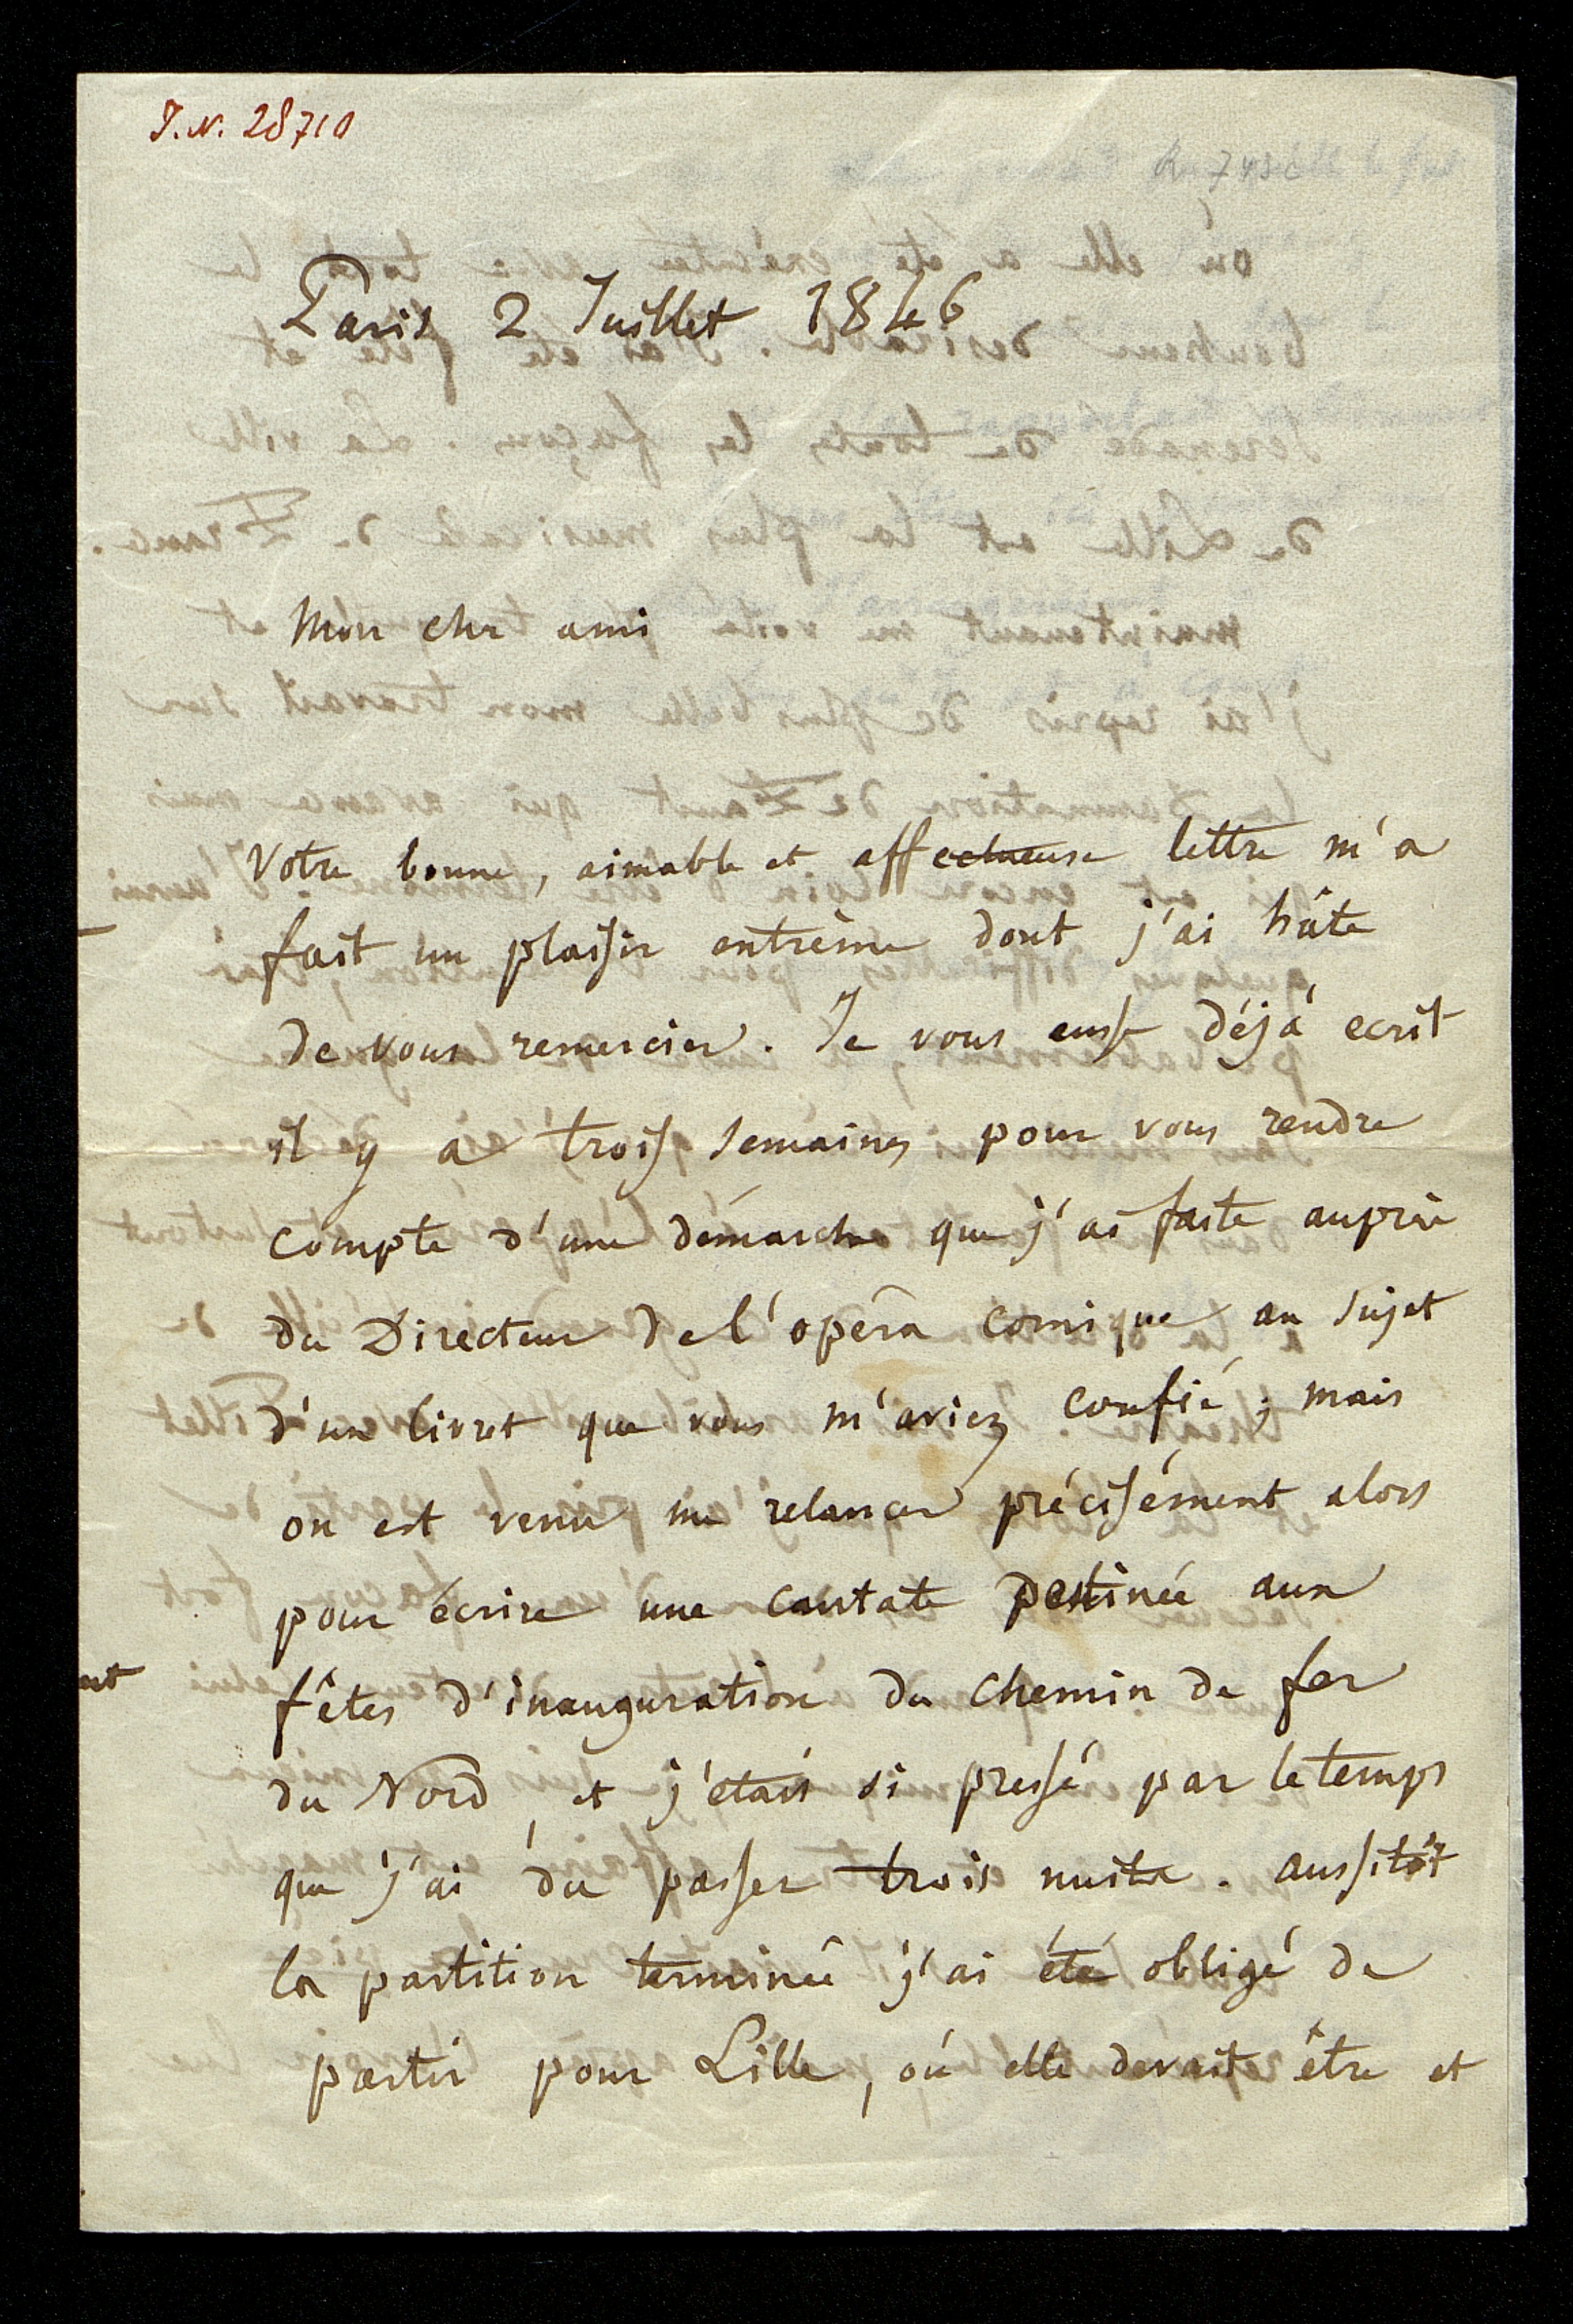 I.N. 28710
Paris 2 Juillet 1846
Mon cher ami
Votre bonne, aimable et affectueuse lettre m'a
fait un plaisir extrême dont j'ai hâte
de vous remercier. Je vous eusse déjà ecrit
il y a trois semaines pour vous rendre
compte d'une démarche que j'ai faite auprès
du Directeur de l'opéra comique au sujet
d'un livret que vous m'aviez confié; mais
on est venu me relancer précisément alors
pour écrire une cantate destinée aux
fêtes d'inauguration du chemin de fer
du Nord, et j'étais si pressé par le temps
que j'ai du passer trois nuits. aussitôt
la partition terminée j'ai été obligé de
partir pour Lille, où elle devait être et